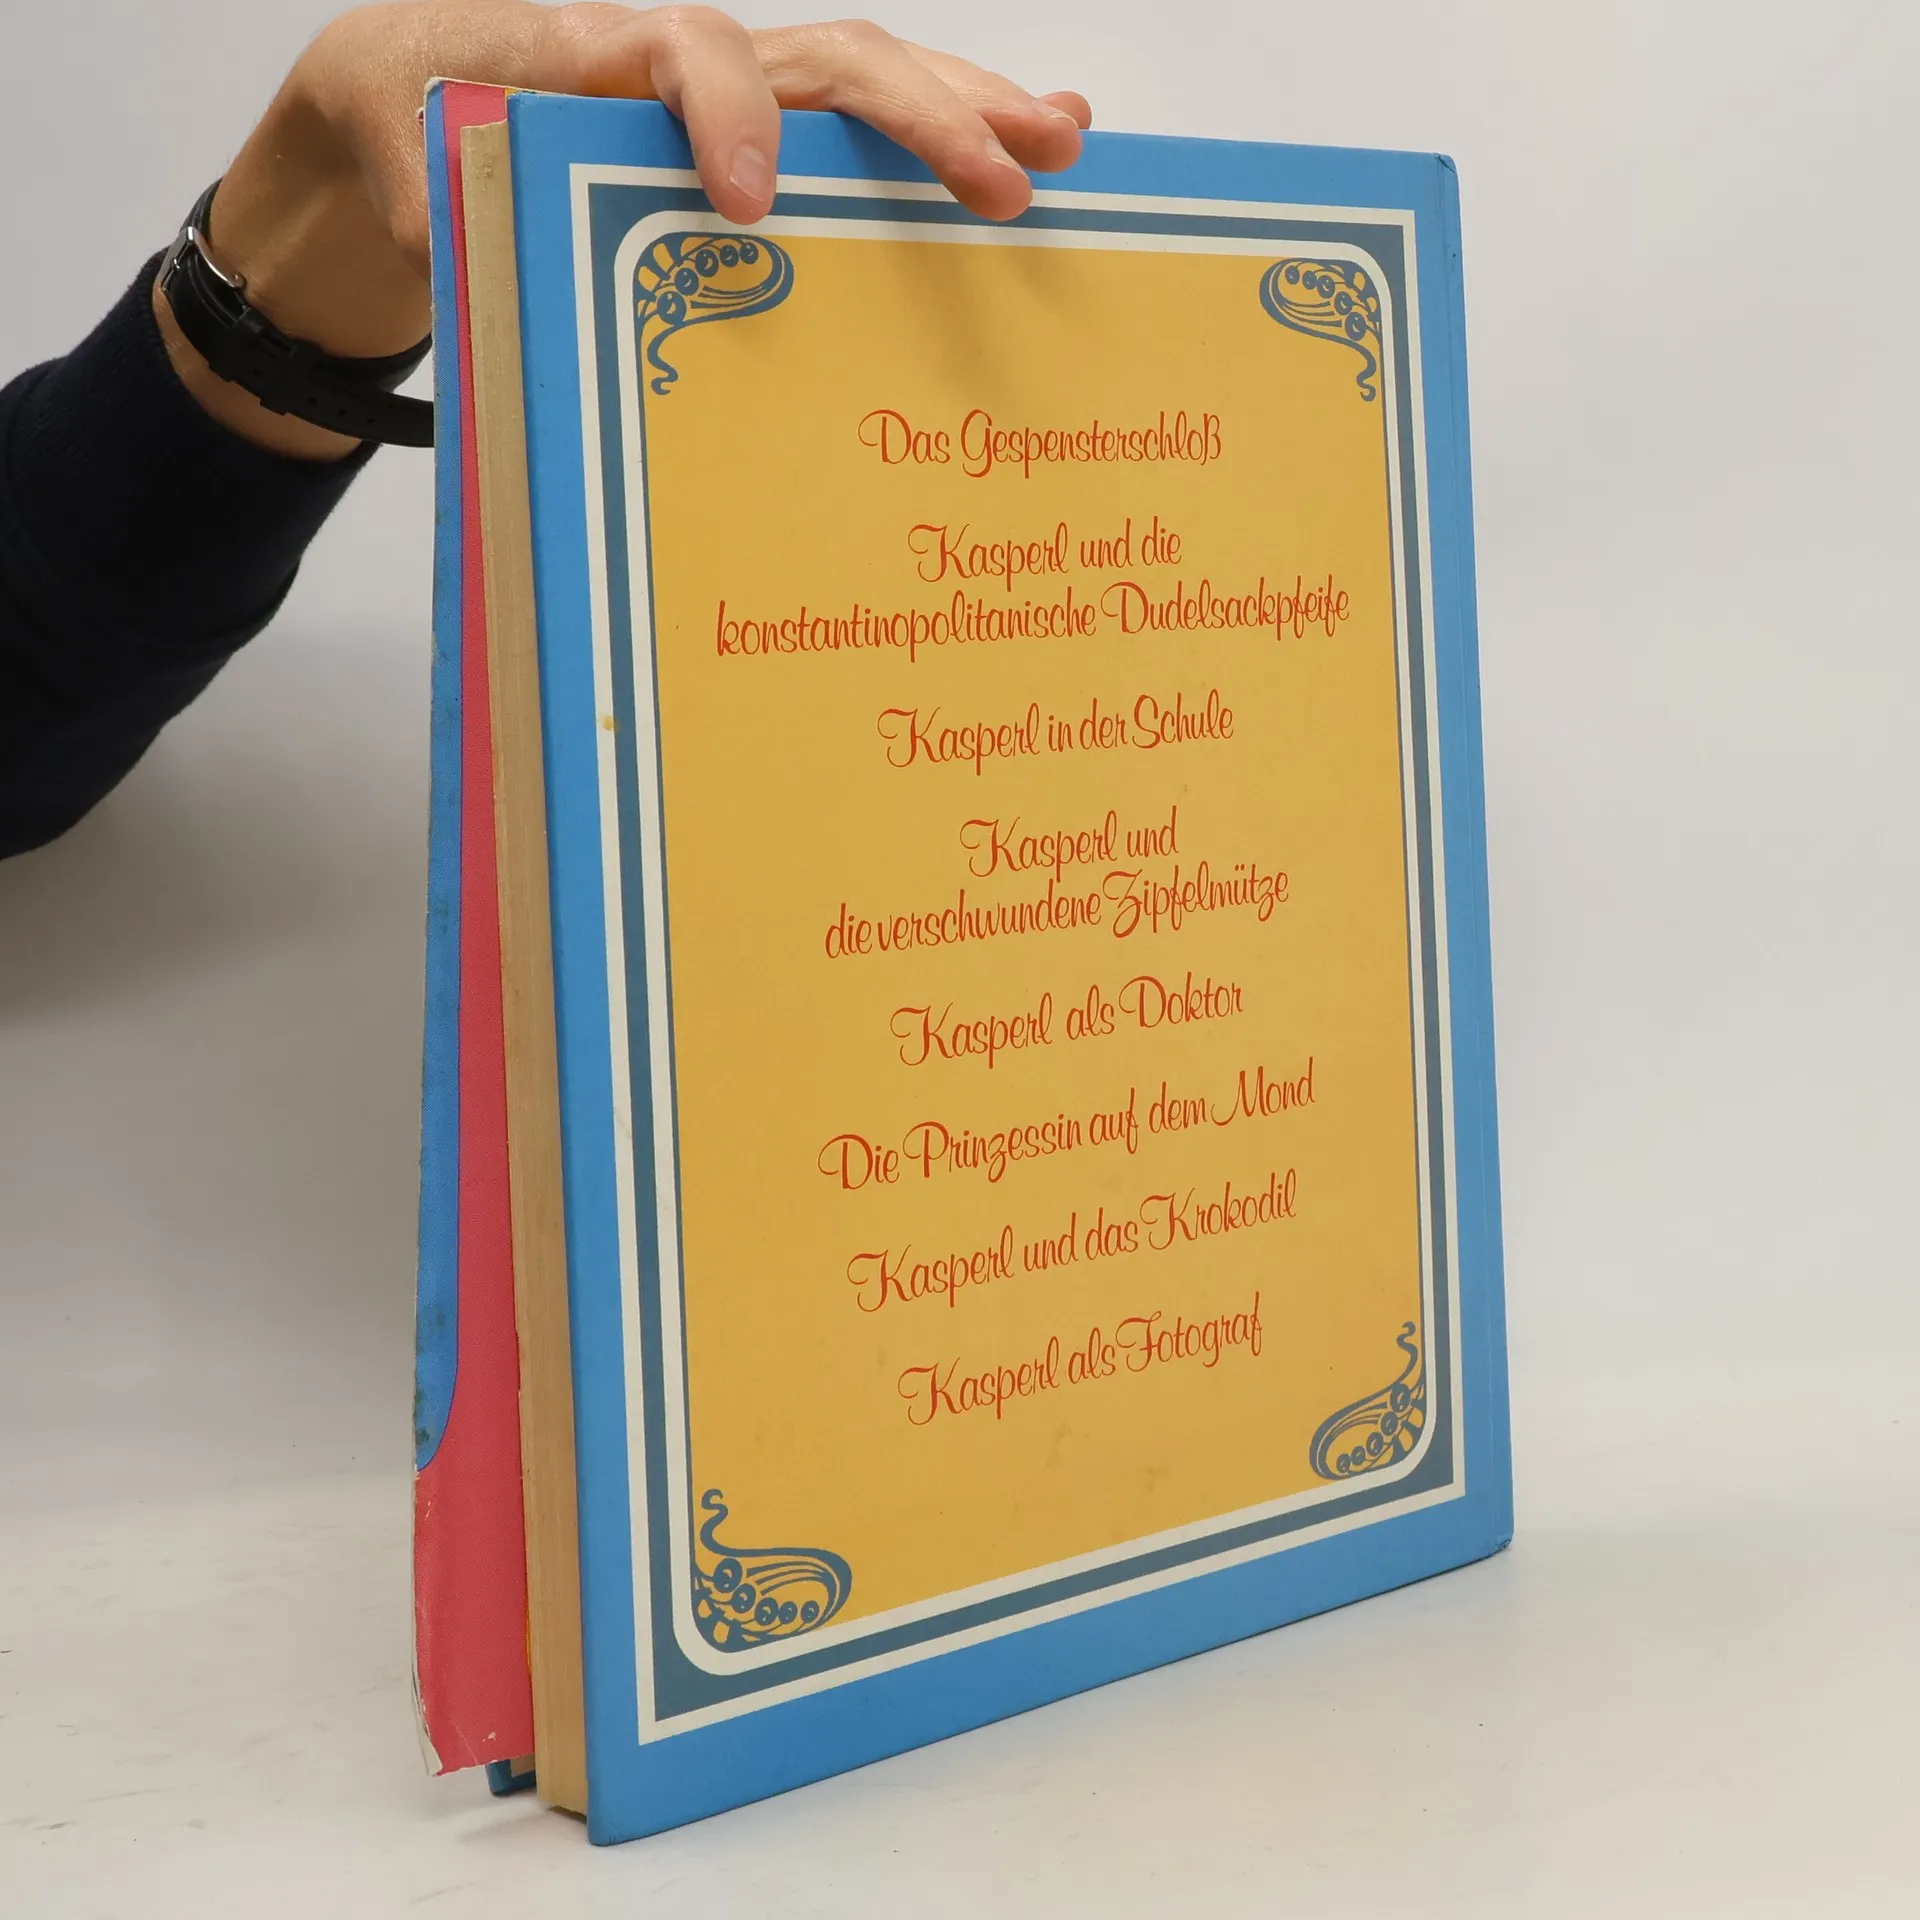 Das Gespensterschloß
Kasperl und die
konstantinopolitanische Dudelsackpfeife
Kasperl in der Schule
Kasperl und
die verschwundene Zipfelmütze
Kasperl als Doktor
Die Prinzessin auf dem Mond
Kasperl und das Krokodil
Kasperl als Fotograf